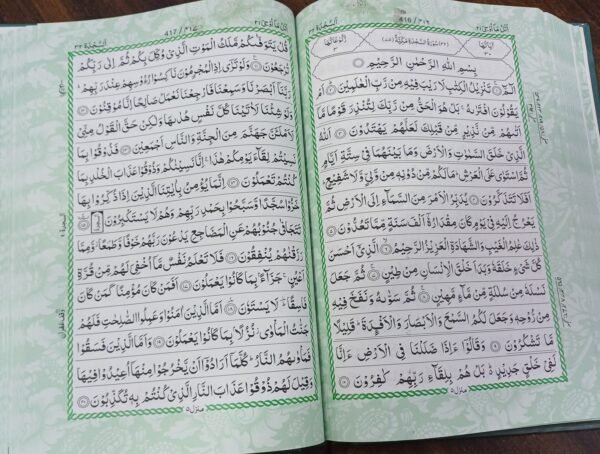 اُتْلُ مَآ اُوْحِیَ ٢١
416
اَلسَّجْدَة ٣٢
اٰيَاتُهَا ٣٠
(٣٢) سُوْرَةُ السَّجْدَةِ مَكِّيَّةٌ (٧٥)
رُكُوْعَاتُهَا ٣
بِسْمِ اللّٰهِ الرَّحْمٰنِ الرَّحِيْمِ
الٓمّٓ ۝١ تَنْزِيْلُ الْكِتٰبِ لَا رَيْبَ فِيْهِ مِنْ رَّبِّ الْعٰلَمِيْنَ ۝٢ اَمْ
يَقُوْلُوْنَ افْتَرٰىهُ ۚ بَلْ هُوَ الْحَقُّ مِنْ رَّبِّكَ لِتُنْذِرَ قَوْمًا مَّآ
اَتٰىهُمْ مِّنْ نَّذِيْرٍ مِّنْ قَبْلِكَ لَعَلَّهُمْ يَهْتَدُوْنَ ۝٣ اَللّٰهُ
الَّذِيْ خَلَقَ السَّمٰوٰتِ وَالْاَرْضَ وَمَا بَيْنَهُمَا فِيْ سِتَّةِ اَيَّامٍ
ثُمَّ اسْتَوٰى عَلَى الْعَرْشِ ؕ مَا لَكُمْ مِّنْ دُوْنِهٖ مِنْ وَّلِيٍّ وَّلَا شَفِيْعٍ ؕ
اَفَلَا تَتَذَكَّرُوْنَ ۝٤ يُدَبِّرُ الْاَمْرَ مِنَ السَّمَآءِ اِلَى الْاَرْضِ ثُمَّ
يَعْرُجُ اِلَيْهِ فِيْ يَوْمٍ كَانَ مِقْدَارُهٗٓ اَلْفَ سَنَةٍ مِّمَّا تَعُدُّوْنَ ۝٥
ذٰلِكَ عٰلِمُ الْغَيْبِ وَالشَّهَادَةِ الْعَزِيْزُ الرَّحِيْمُ ۝٦ الَّذِيْٓ اَحْسَنَ
كُلَّ شَيْءٍ خَلَقَهٗ وَبَدَاَ خَلْقَ الْاِنْسَانِ مِنْ طِيْنٍ ۝٧ ثُمَّ جَعَلَ
نَسْلَهٗ مِنْ سُلٰلَةٍ مِّنْ مَّآءٍ مَّهِيْنٍ ۝٨ ثُمَّ سَوّٰىهُ وَنَفَخَ فِيْهِ
مِنْ رُّوْحِهٖ وَجَعَلَ لَكُمُ السَّمْعَ وَالْاَبْصَارَ وَالْاَفْـِٕدَةَ ؕ قَلِيْلًا
مَّا تَشْكُرُوْنَ ۝٩ وَقَالُوْٓا ءَاِذَا ضَلَلْنَا فِي الْاَرْضِ ءَاِنَّا
لَفِيْ خَلْقٍ جَدِيْدٍ ؕ بَلْ هُمْ بِلِقَآئِ رَبِّهِمْ كٰفِرُوْنَ ۝١٠
منزل ٥
اُتْلُ مَآ اُوْحِیَ ٢١
417
اَلسَّجْدَة ٣٢
قُلْ يَتَوَفّٰىكُمْ مَّلَكُ الْمَوْتِ الَّذِيْ وُكِّلَ بِكُمْ ثُمَّ اِلٰى رَبِّكُمْ
تُرْجَعُوْنَ ۝١١ وَلَوْ تَرٰٓى اِذِ الْمُجْرِمُوْنَ نَاكِسُوْا رُءُوْسِهِمْ عِنْدَ رَبِّهِمْ ؕ
رَبَّنَآ اَبْصَرْنَا وَسَمِعْنَا فَارْجِعْنَا نَعْمَلْ صَالِحًا اِنَّا مُوْقِنُوْنَ ۝١٢
وَلَوْ شِئْنَا لَاٰتَيْنَا كُلَّ نَفْسٍ هُدٰىهَا وَلٰكِنْ حَقَّ الْقَوْلُ مِنِّيْ
لَاَمْلَئَنَّ جَهَنَّمَ مِنَ الْجِنَّةِ وَالنَّاسِ اَجْمَعِيْنَ ۝١٣ فَذُوْقُوْا بِمَا
نَسِيْتُمْ لِقَآءَ يَوْمِكُمْ هٰذَا ۚ اِنَّا نَسِيْنٰكُمْ وَذُوْقُوْا عَذَابَ الْخُلْدِ بِمَا
كُنْتُمْ تَعْمَلُوْنَ ۝١٤ اِنَّمَا يُؤْمِنُ بِاٰيٰتِنَا الَّذِيْنَ اِذَا ذُكِّرُوْا بِهَا
خَرُّوْا سُجَّدًا وَّسَبَّحُوْا بِحَمْدِ رَبِّهِمْ وَهُمْ لَا يَسْتَكْبِرُوْنَ ۝١٥
تَتَجَافٰى جُنُوْبُهُمْ عَنِ الْمَضَاجِعِ يَدْعُوْنَ رَبَّهُمْ خَوْفًا وَّطَمَعًا وَّمِمَّا
رَزَقْنٰهُمْ يُنْفِقُوْنَ ۝١٦ فَلَا تَعْلَمُ نَفْسٌ مَّآ اُخْفِيَ لَهُمْ مِّنْ قُرَّةِ
اَعْيُنٍ ۚ جَزَآءًۢ بِمَا كَانُوْا يَعْمَلُوْنَ ۝١٧ اَفَمَنْ كَانَ مُؤْمِنًا كَمَنْ كَانَ
فَاسِقًا ؔؕ لَا يَسْتَوٗنَ ۝١٨ اَمَّا الَّذِيْنَ اٰمَنُوْا وَعَمِلُوا الصّٰلِحٰتِ فَلَهُمْ
جَنّٰتُ الْمَاْوٰى ؗ نُزُلًۢا بِمَا كَانُوْا يَعْمَلُوْنَ ۝١٩ وَاَمَّا الَّذِيْنَ فَسَقُوْا
فَمَاْوٰىهُمُ النَّارُ ؕ كُلَّمَآ اَرَادُوْٓا اَنْ يَّخْرُجُوْا مِنْهَآ اُعِيْدُوْا فِيْهَا
وَقِيْلَ لَهُمْ ذُوْقُوْا عَذَابَ النَّارِ الَّذِيْ كُنْتُمْ بِهٖ تُكَذِّبُوْنَ ۝٢٠
منزل ٥